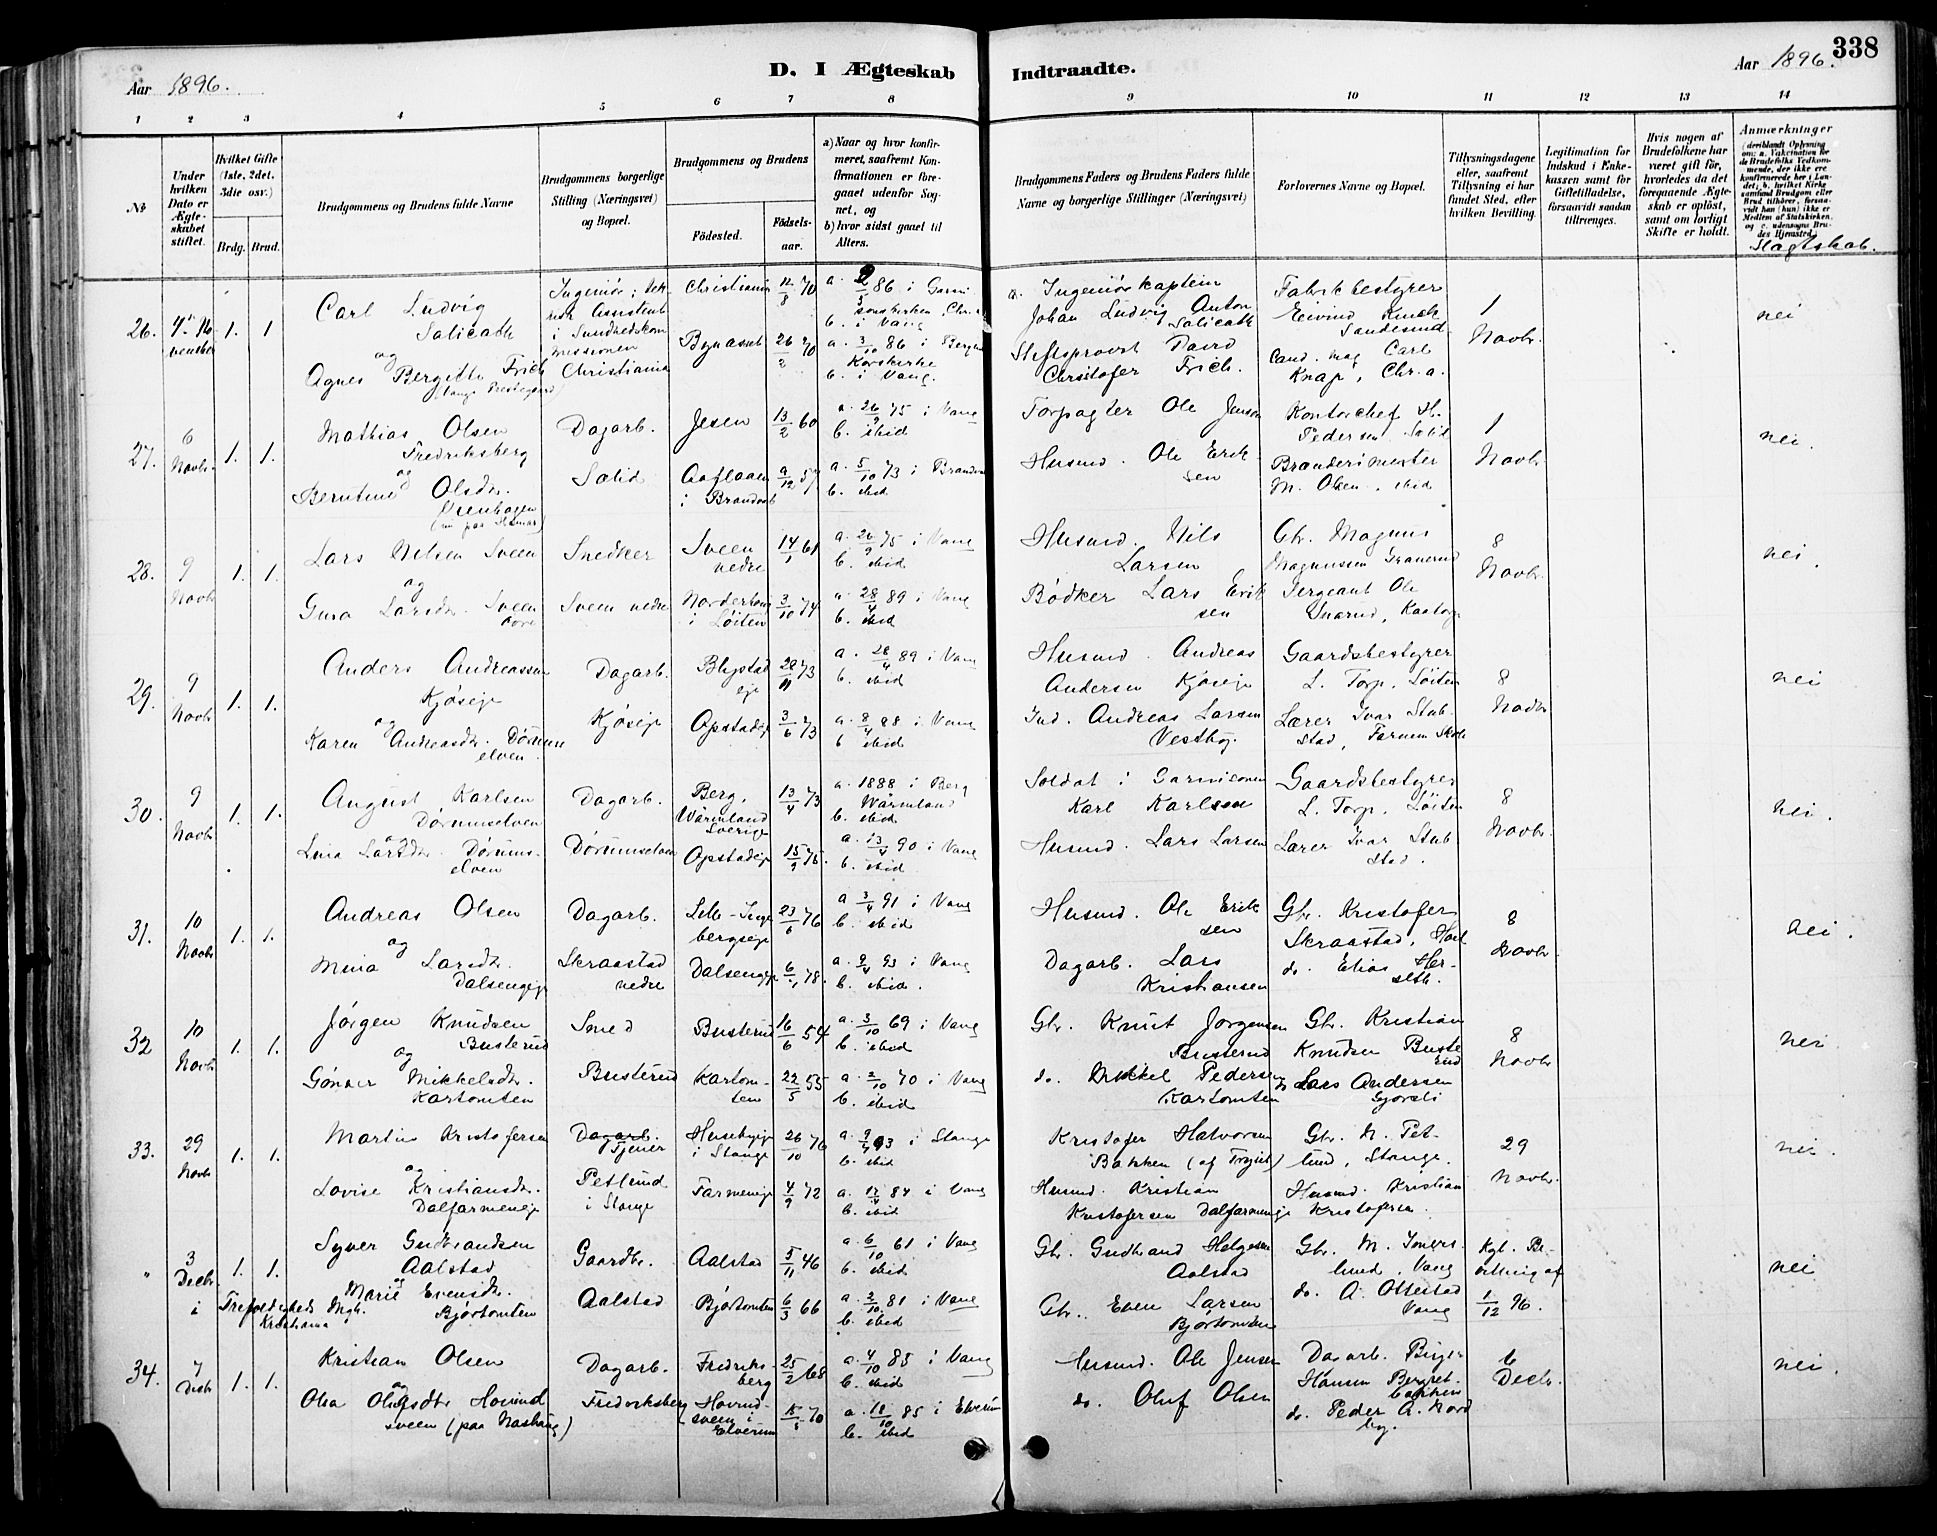 338
Aar 1896.
D. I Ægteskab Indtraadte.
Aar 1896.
1 2 3 4 5 6 7 8 9 10 11 12 13 14
No
Under hvilken Dato er Ægteskabet stiftet.
Hvilket Gifte (1ste, 2det, 3die osv.)
Brdg. Brud.
Brudgommens og Brudens fulde Navne
Brudgommens borgerlige Stilling (Næringsvei) og Bopæl.
Brudgommens og Brudens
Fødested.
Fødselsaar.
a) Naar og hvor konfirmeret, saafremt Konfirmationen er foregaaet udenfor Sognet, og
b) hvor sidst gaaet til Alters.
Brudgommens Faders og Brudens Faders fulde Navne og borgerlige Stillinger (Næringsvei)
Forlovernes Navne og Bopæl.
Tillysningsdagene eller, saafremt Tillysning ei har fundet Sted, efter hvilken Bevilling.
Legitimation for Indskud i Enkekassen samt for Giftetilladelse, forsaavidt saadan tiltrænges.
Hvis nogen af Brudefolkene har været gift før, hvorledes da det foregaaende Ægteskab er opløst, samt om lovligt Skifte er holdt.
Anmærkninger (deriblandt Oplysning om: a. Vakcination for de Brudefolks Vedkommende, der ikke ere konfirmerede her i Landet; b. hvilket Kirkesamfund Brudgom eller Brud tilhører, forsaavidt han (hun) ikke er Medlem af Statskirken, og c. udensogns Brudes Hjemsted.)
Slægtskab.
26. 4de November 1. 1
Carl Ludvig Salicath
og
Agnes Bergette Frich
(Vangs Prestegaard)
Ingeniør, Assistent i Sundhedskommissionen Christiania
Christiania 12/8 70
Bynæsset 26/2 70
a. 2/5 86 i Garnisonskirken Chr.a
b. i Vang
a. 3/10 86 i Bergen Korskirke
b. i Vang.
a. Ingeniørkaptein Johan Ludvig Anton Salicath
Stiftsprovst David Christofer Frich.
Fabrikbestyrer Eivind Sandesund
Cand. mag Carl Knap, Chr.a.
1 Novbr.
nei
27. 6 Novbr. 1. 1.
Mathias Olsen Fredriksberg
og
Berntine Olsdtr.
(nu paa Hamar)
Dagarb.
Solid
Jesen 13/2 60
i Brandvol 9/12 57
a. 26/9 75 i Vang
b. ibid
a. 5/10 73 i Brandvol
b. ibid
Torpagter Ole Jensen
Husmd. Ole Eriksen
Kontorchef H. Pedersen Solid
Brænderimester M. Olsen, ibid
1 Novbr.
nei.
28. 9 Novbr 1. 1.
Lars Nilsen Sveen
og
Guro Larsdtr. Sveen
Snedker
Sveen nedre
Sveen nedre 14/1 61
i Løiten 3/10 74
a. 26/9 75 i Vang
b. ibid
a. 28/4 89 i Vang
b. ibid
Husmd. Nils Larsen
Bødker Lars Eriksen
Gbr. Magnus Magnussen Granerud
Sergeant Ole
8 Novbr.
nei.
29. 9 Novbr 1. 1.
Anders Andreassen Kjøseje
og
Karen Andreasdtr. Dørumselven
Dagarb.
Kjøseje
Blystadeje 28/11 73
Opstadeje 3/6 73
a. 28/4 89 i Vang
b. ibid
a. 8/4 88 i Vang
b ibid
Husmd. Andreas Andersen Kjøseje
Ind. Andreas Larsen Vesthøj.
Gaardsbestyrer L. Torp. Løiten
Lærer Ivar Stubstad, Farmen Skole
8 Novbr
nei
30. 9 Novbr 1. 1.
August Karlsen Dørumselven
og
Lina Larsdtr. Dørumselven
Dagarb.
Dørumselven
Berg, Wärmland Sverige 13/4 73
Opstadeje 15/9 75.
a. 1888 i Berg Wärmland
b. ibid
a. 13/4 90 i Vang
b. ibid.
Soldat i Garnisonen Karl Karlsson
Husmd. Lars Larsen
Gaardsbestyrer L. Torp, Løiten
Lærer Ivar Stubstad.
8 Novbr.
nei.
31. 10 Novbr 1. 1.
Andreas Olsen
og
Mina Larsdtr. Dalsengeje
Dagarb.
Skraastad nedre
Lille-Ingebergseje 23/6 76
Dalsengeje 6/1 78.
a 3/4 91 i Vang
b. ibid
a. 9/4 93 i Vang
b. ibid.
Husmd. Ole Eriksen
Dagarb. Lars Kristiansen
Gbr. Kristofer Skraastad,
do. Elias Herseth.
8 Novbr.
nei.
32 10 Novbr 1. 1.
Jørgen Knudsen Busterud
og
Gønner Mikkelsdtr. Kartomten
Smed
Busterud
Busterud 16/6 54
Kartomten 22/5 55
a. 3/10 69 i Vang
b. ibid
a. 2/10 70 i Vang
b. ibid
Gbr. Knut Jørgensen Busterud
do. Mikkel Pedersen Kartomten
Gbr. Kristian Knudsen Busterud
do Lars Andersen Gjorsli
8 Novbr.
nei.
33. 29 Novbr 1. 1.
Martin Kristofersen
og
Lovise Kristiansdtr. Dalfarmeneje
Dagarb. Tjener
Petlund i Stange
Husebyeje i Stange 26/10 76
Farmeneje 4/9 72
a. 9/4 93 i Stange
b. ibid
a. 12/4 84 i Vang
b. ibid
Kristofer Halvorsen Bakken (af Trysil)
Husmd. Kristian Kristofersen Dalfarmeneje
Gbr. N. Petlund, Stange.
Husmd. Kristian Kristofersen.
29 Novbr.
nei.
" 3 Decbr. 1. 1.
i Trefoldigheds Mgh. Kristiania
Syver Gudbrandsen Aalstad
og
Marie Evensdtr. Bjørtomten
Gaardbr.
Aalstad
Aalstad 5/11 46
Bjørtomten 6/3 66
a. 6/10 61 i Vang
b. ibid
a. 2/10 81 i Vang
b. ibid
Gbr. Gudbrand Helgesen Aalstad
Gbr. Even Larsen Bjørtomten
Gbr. M. Imerslund, Vang
do. A. Ottestad Vang
Kgl. Bevilling af 1/12 96.
nei
34. 7 Decbr 1. 1.
Kristian Olsen
og
Olea Olufsdtr. Hovindsveen (paa Nashaug)
Dagarb.
Fredriksberg
Fredriksberg 25/2 68
Hovindsveen i Elverum 15/5 70
a. 4/10 85 i Vang
b. ibid
a. 18/10 85 i Elverum
b. ibid
Husmd. Ole Jensen
do. Oluf Olsen
Dagarb. Birger Hansen Bergetbakken
do. Peder A. Nordby.
6 Decbr.
nei.